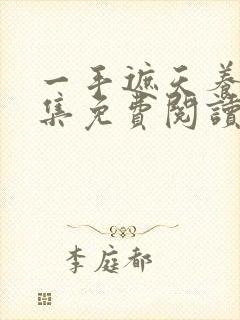 一手遮天養
集免費閱讀
李庭都